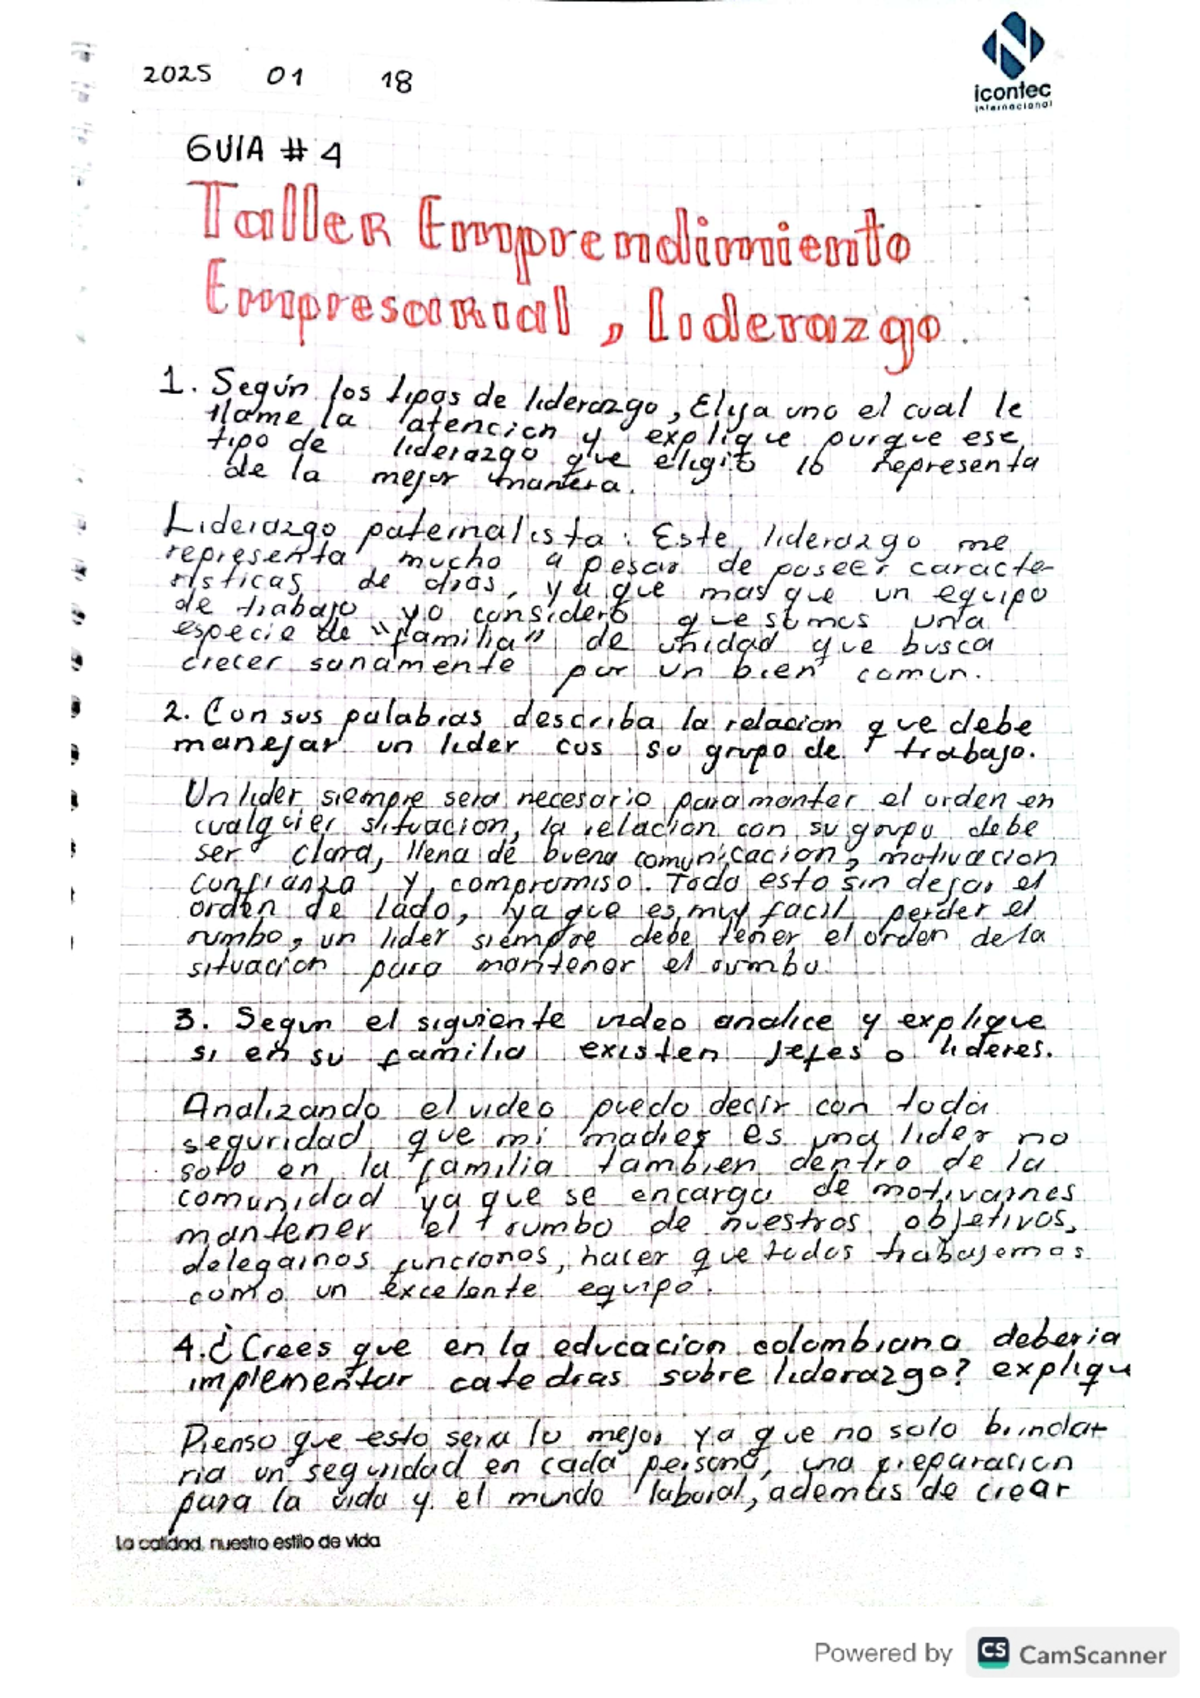 2025 01 18
icontec
internacional
GUIA # 4
Taller Emprendimiento
Empresarial, liderazgo.
1. Según los tipos de liderazgo, Elija uno el cual le
llame la atencion y explique porque ese
tipo de liderazgo que eligió lo representa
de la mejor manera.
Liderazgo paternalista: Este liderazgo me
representa mucho a pesar de poseer caracte-
risticas de otros, ya que mas que un equipo
de trabajo yo consideró que somos una
especie de "familia" de unidad que busca
crecer sanamente por un bien comun.
2. Con sus palabras describa la relacion que debe
manejar un lider cos su grupo de trabajo.
Un lider siempre sera necesario para manter el orden en
cualquier situacion, la relacion con su grupo debe
ser clara, llena de buena comunicacion, motivacion
confianza y compromiso. Todo esto sin dejar el
orden de lado, ya que es muy facil perder el
rumbo, un lider siempre debe tener el orden de la
situacion para mantener el rumbo.
3. Segun el siguiente video analice y explique
si en su familia existen jefes o lideres.
Analizando el video puedo decir con toda
seguridad que mi madres es una lider no
solo en la familia tambien dentro de la
comunidad ya que se encarga de motivarnos
mantener el rumbo de nuestros objetivos,
delegarnos funcionos, hacer que todos trabajemos
como un excelente equipo.
4. ¿Crees que en la educacion colombiana deberia
implementar catedras sobre liderazgo? expliqu
Pienso que esto sera lo mejor ya que no solo brindar
ria un seguridad en cada persona, una preparacion
para la vida y el mundo laboral, ademas de crear
La calidad, nuestro estilo de vida
Powered by CS CamScanner